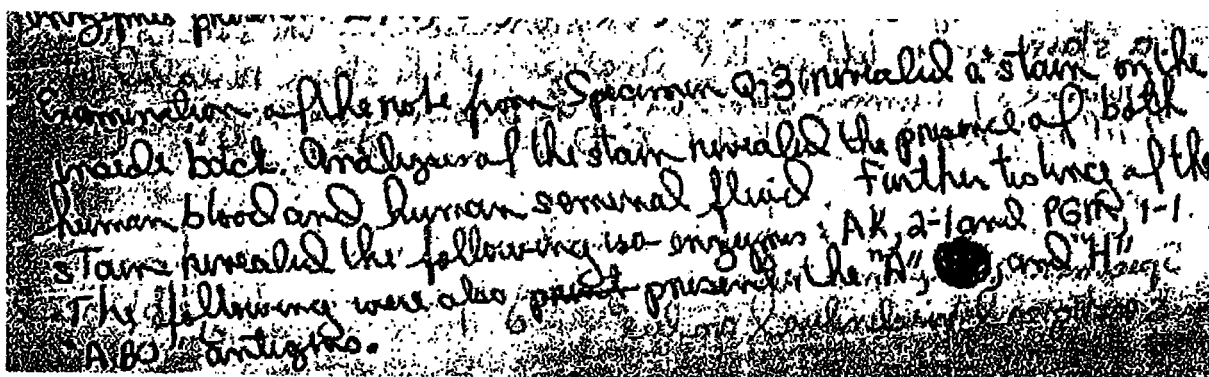 Examination of the note from Specimen Q-3 revealed a stain on the
inside back. Analyzes of the stain revealed the presence of both
human blood and human seminal fluid. Further testing of the
stain revealed the following iso-enzymes: AK, 2-1 and PGM, 1-1.
The following were also present the "A", and "H"
"ABO" antigens.